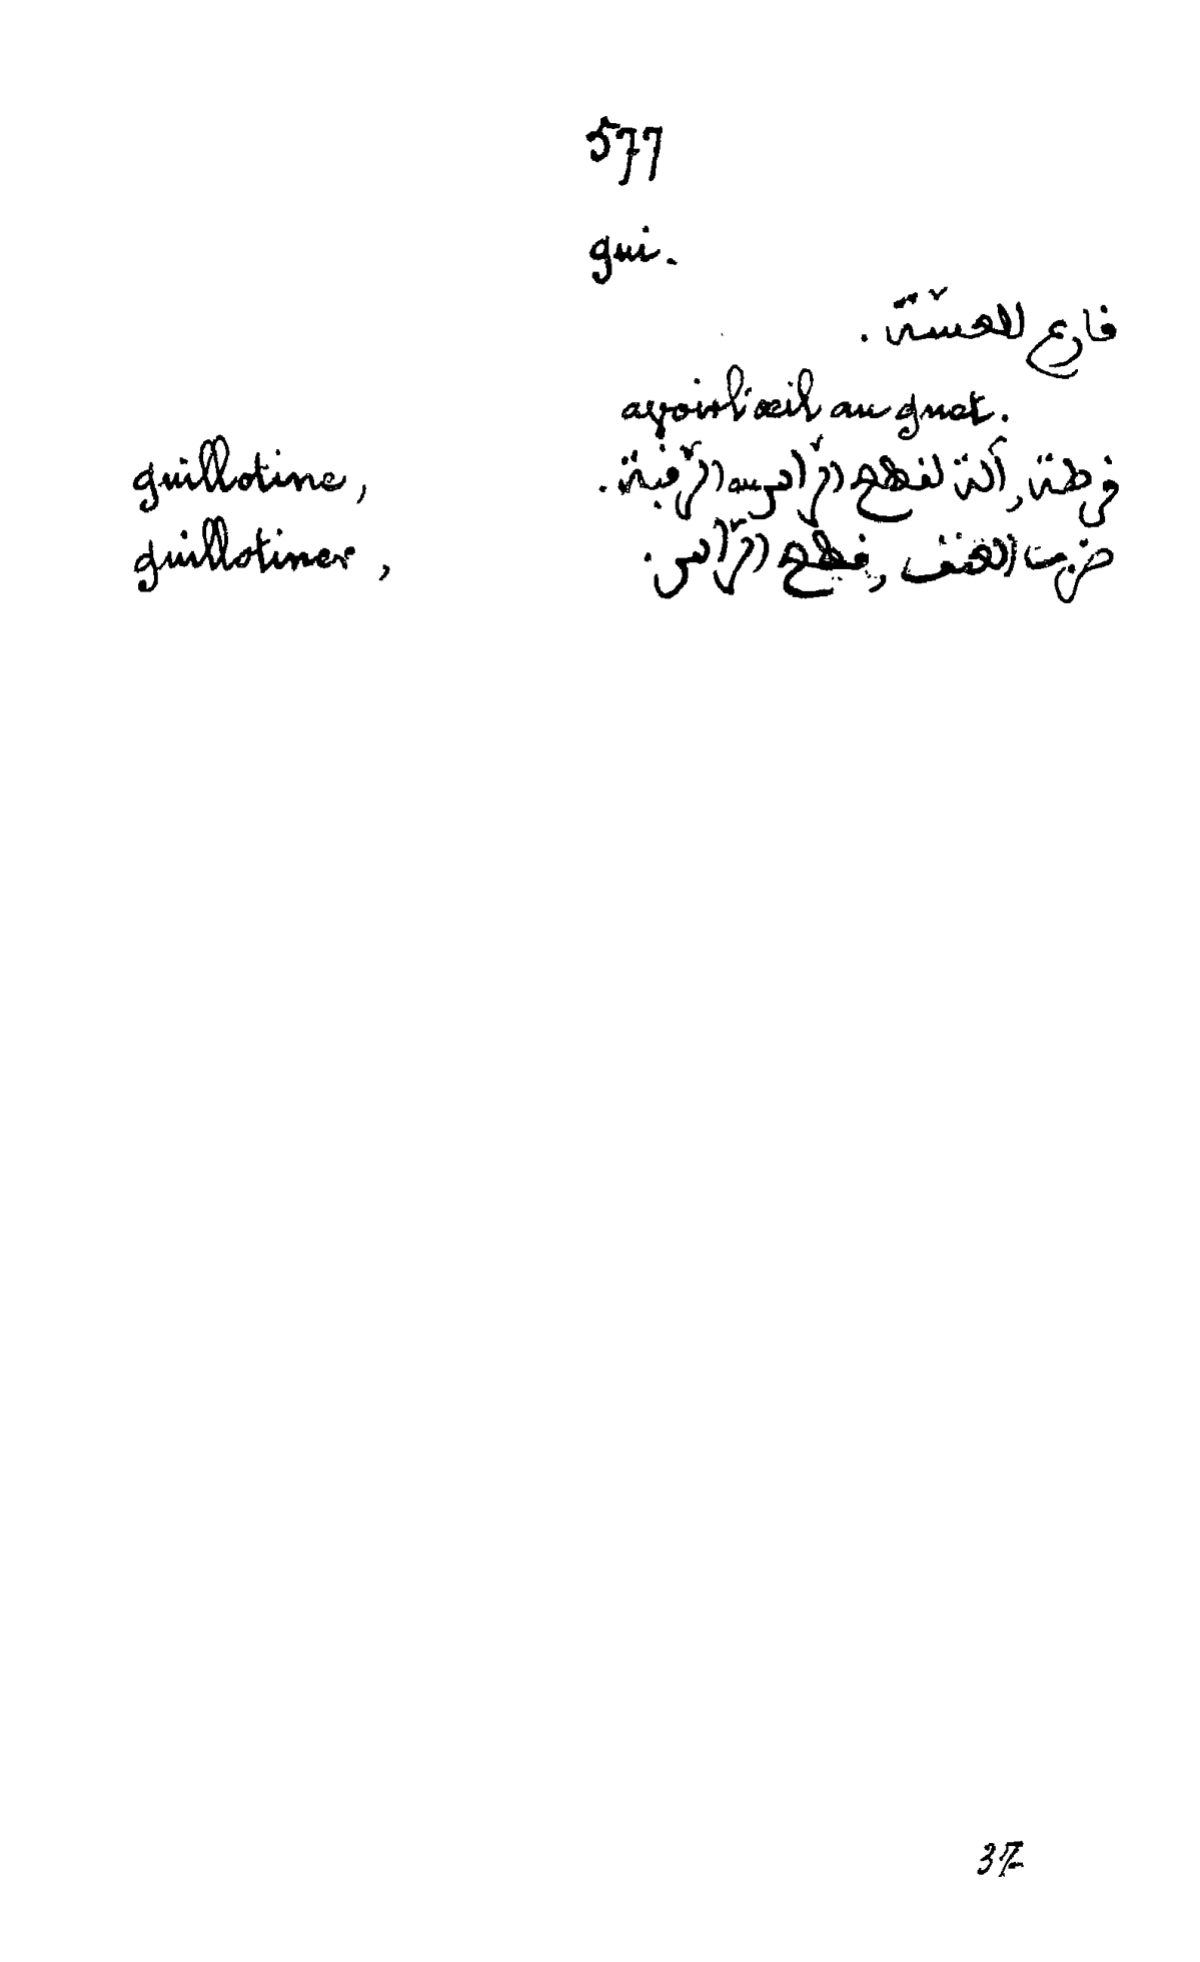 577
gui.
فارع للعسّة.
avoir l'œil au guet.
guillotine, فرطة, آلة لقطع الرّاس au الرّقبة.
guillotiner, ضرب العنق, قطع الرّاس.
37